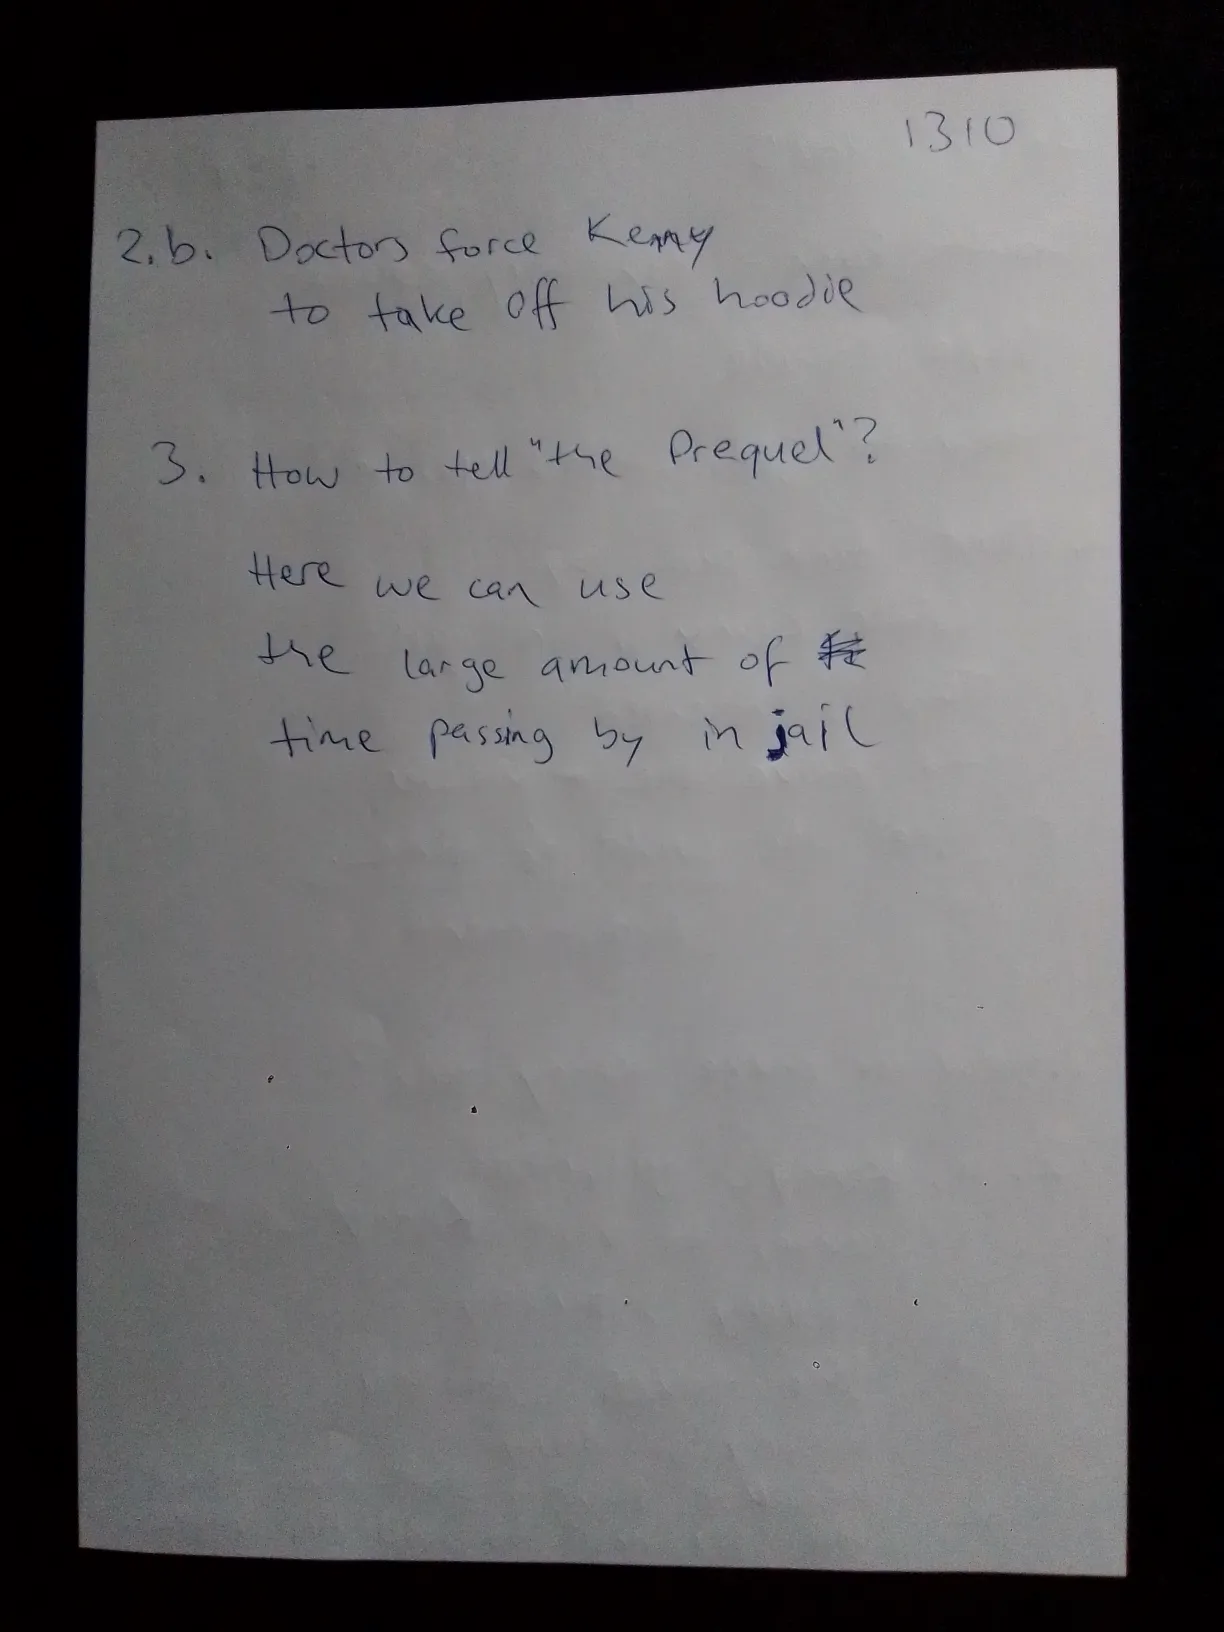 1310
2.b. Doctors force Kenny
to take off his hoodie
3. How to tell "the Prequel"?
Here we can use
the large amount of
time passing by in jail